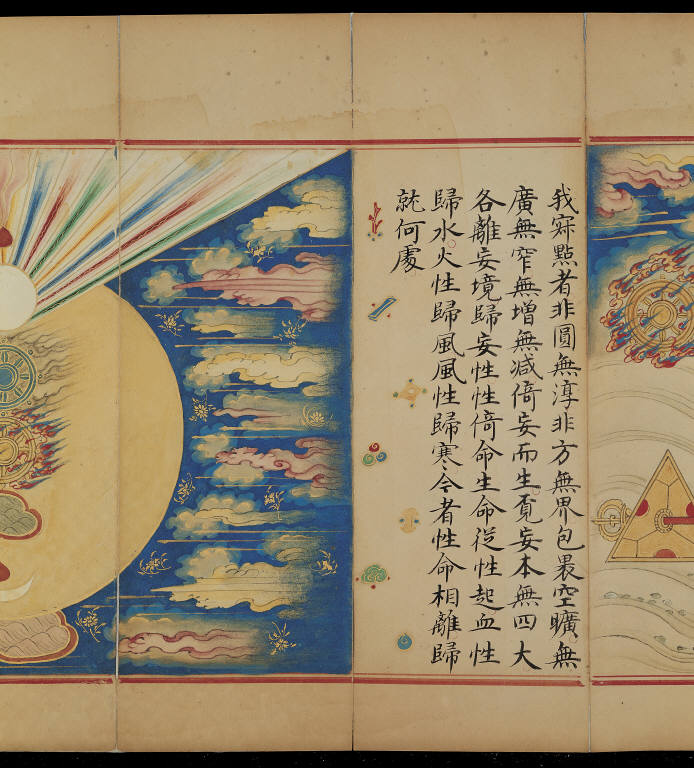 我寂㸃者非圓無淳非方無界包褁空曠無
廣無窄無增無减倚妄而生覔妄本無四大
各離妄境歸妄性性倚命生命從性起血性
歸水火性歸風風性歸寒今者性命相離歸
就何處